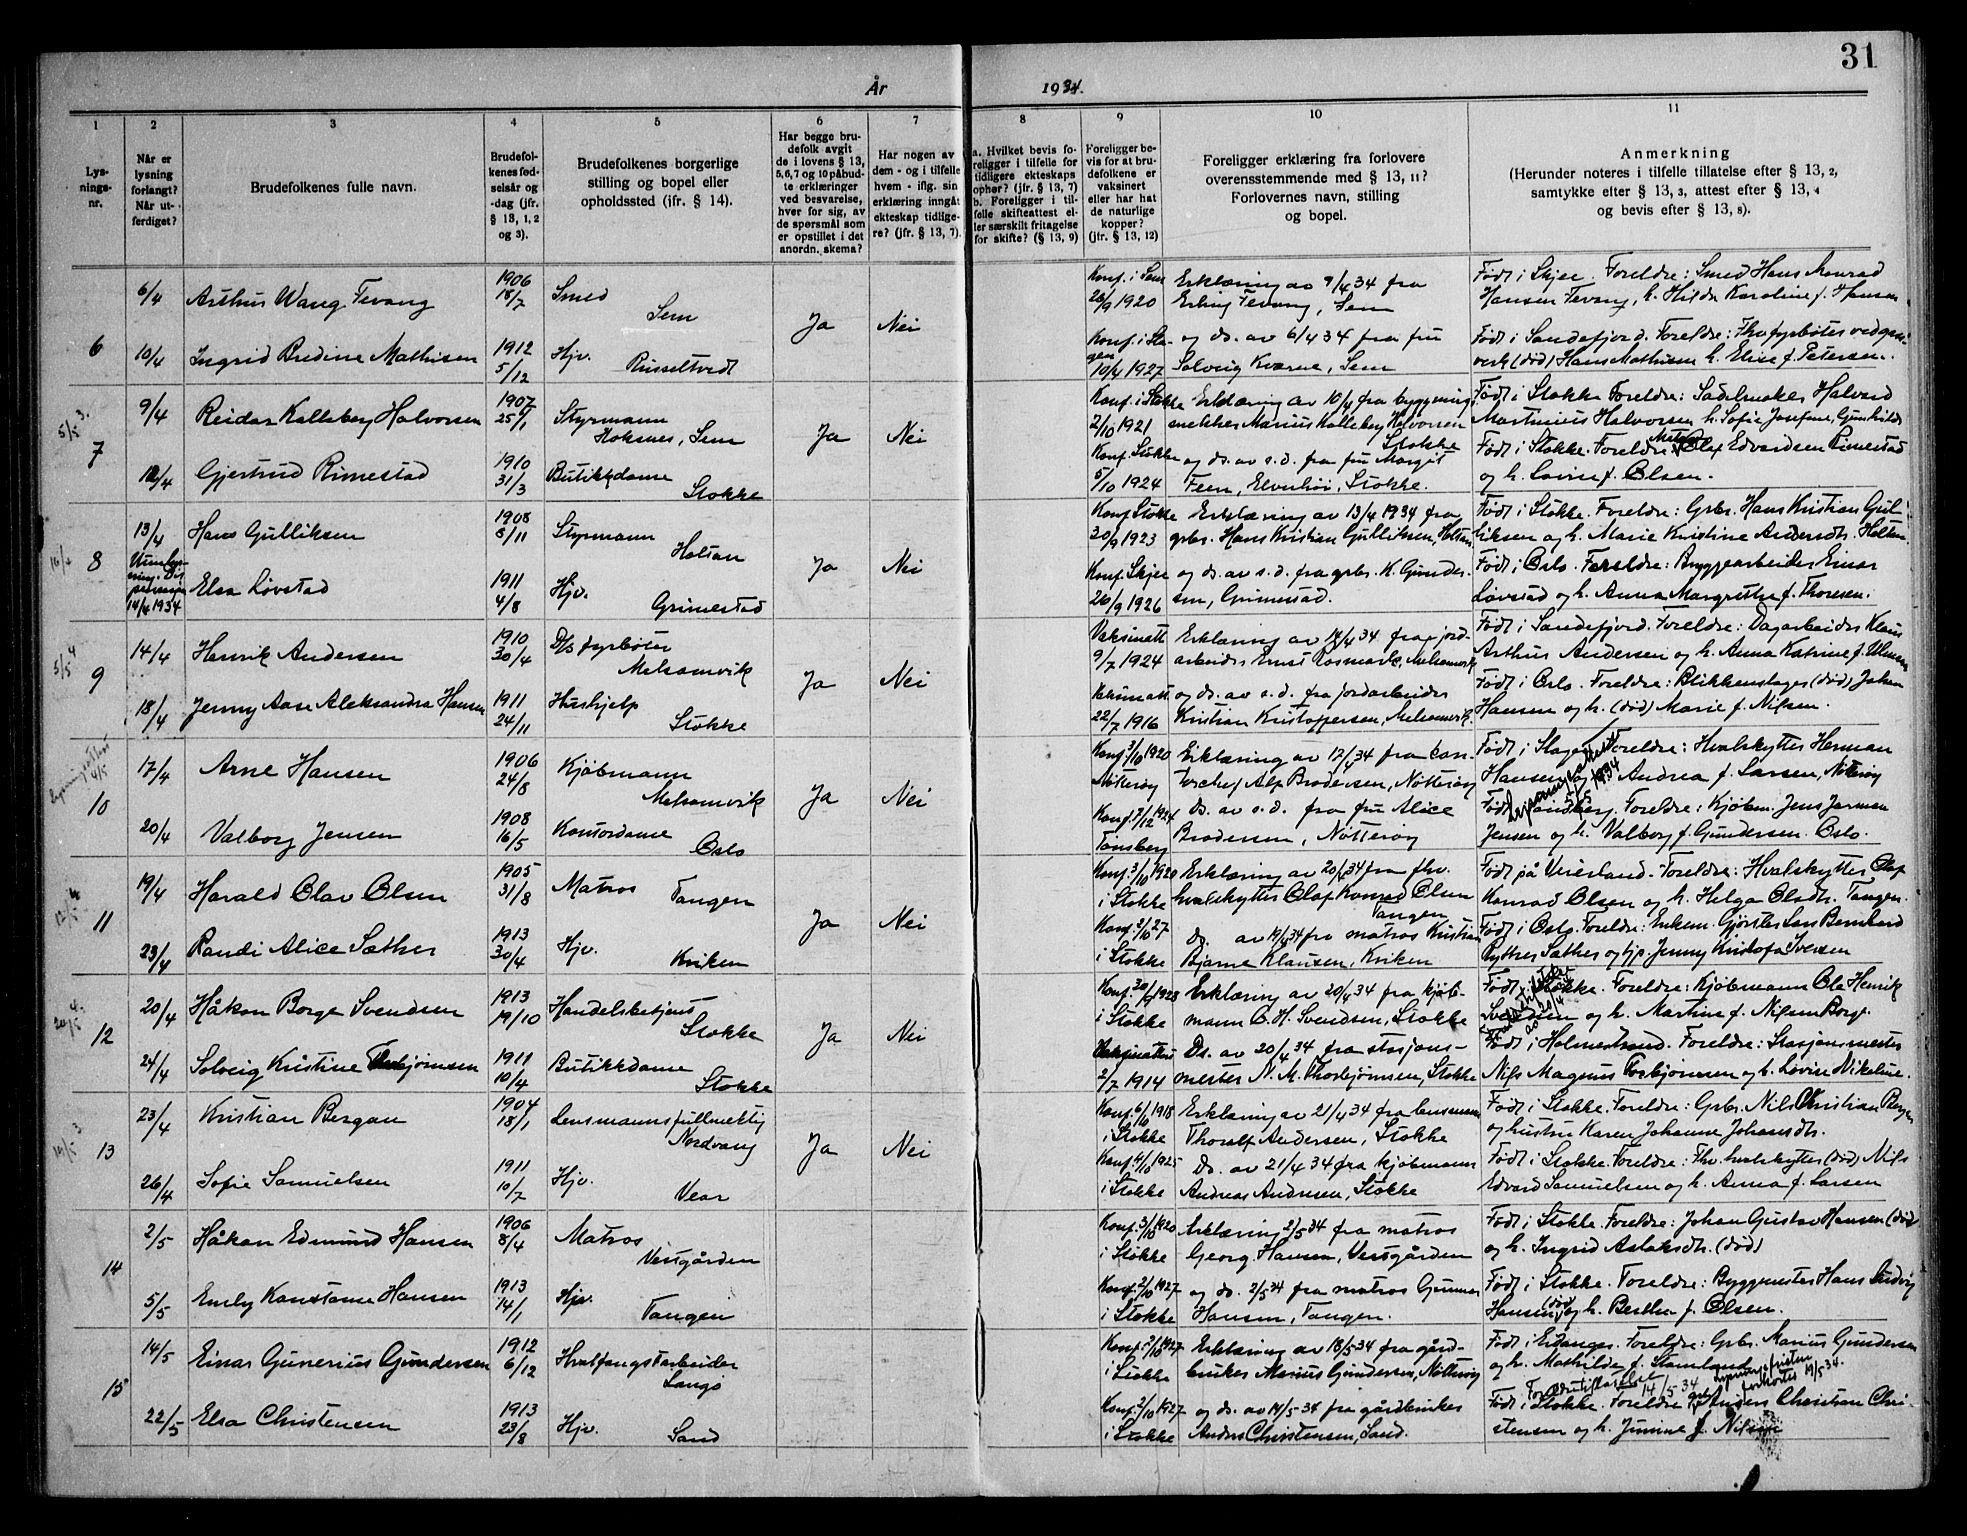 31
År 1934.
1 2 3 4 5 6 7 8 9 10 11
Lysningsnr.
Når er lysning forlangt? Når utferdiget?
Brudefolkenes fulle navn.
Brudefolkenes fødselsår og -dag (jfr. § 13, 1, 2 og 3).
Brudefolkenes borgerlige stilling og bopel eller opholdssted (jfr. § 14).
Har begge brudefolk avgit de i lovens § 13, 5,6,7 og 10 påbudte erklæringer ved besvarelse, hver for sig, av de spørsmål som er opstillet i det anordn. skema?
Har nogen av dem - og i tilfelle hvem - iflg. sin erklæring inngått ekteskap tidligere? (jfr. § 13, 7).
a. Hvilket bevis foreligger i tilfelle for tidligere ekteskaps ophør? (jfr. § 13, 7) b. Foreligger i tilfelle skifteattest eller særskilt fritagelse for skifte? (§ 13, 9)
Foreligger bevis for at brudefolkene er vaksinert eller har hat de naturlige kopper? (jfr. § 13, 12)
Foreligger erklæring fra forlovere overensstemmende med § 13, 11? Forlovernes navn, stilling og bopel.
Anmerkning (Herunder noteres i tilfelle tillatelse efter § 13, 2, samtykke efter § 13, 3, attest efter § 13, 4 og bevis efter § 13, 8).
6
6/4 Arthur Wang Tevang 1906 18/7 Smed Sem Ja Nei
Konf. i Sem 26/9 1920 Erklæring av 9/4 34 fra Erling Tevang, Sem
Født i Skjee. Foreldre: Smed Hans Konrad Hansen Tevang, h. Hilda Karoline f. Hansen
10/4 Ingrid Bredine Mathisen 1912 5/12 Hjv. Russeltvedt
10/4 1927 og ds. av 6/4 34 fra fru Solveig Kværne, Sem
Født i Sandefjord. Foreldre: Fhv. fyrbøter ved gassverk (død) Hans Mathisen h. Elise f. Petersen.
7
9/4 Reidar Kalleberg Halvorsen 1907 25/1 Styrmann Hoksnes, Sem Ja Nei
Konf. i Stokke 2/10 1921 Erklæring av 10/4 fra bygningssnekker Marius Kalleberg Halvorsen Stokke
Født i Stokke Foreldre: Sadelmaker Halvard Martinius Halvorsen h. Sofie Josefine Gunhilds
12/4 Gjertrud Rimestad 1910 31/3 Butikkdame Stokke
Konf. Stokke 5/10 1924 og ds. av s.d. fra fru Margit Feen, Elverhøi, Stokke.
Født i Stokke. Foreldre: Olaf Edvardsen Rimestad og h. Lovise f. Olsen.
8
13/4 Hans Gulliksen 1908 8/11 Styrmann Holtan Ja Nei
14/4 1934
Konf. Stokke 30/9 1923 Erklæring av 13/4 1934 fra grbr. Hans Kristian Gulliksen, Holtan
Født i Stokke. Foreldre: Grbr. Hans Kristian Gulliksen og h. Marie Kristine Andersdtr. Holtan.
Elsa Løvstad 1911 4/8 Hjv. Grimestad
Konf. Skjee 26/9 1926 og ds. av s.d. fra grbr. K. Gundersen, Grimestad.
Født i Oslo. Foreldre: Byggearbeider Einar Løvstad og h. Anna Margrethe f. Thoresen.
9
14/4 Henrik Andersen 1910 30/4 D/s fyrbøter Melsomvik Ja Nei
Vaksinatt 9/7 1924 Erklæring av 14/4 34 fra jordarbeider Ernst Rosmark, Melsomvik
Født i Sandefjord. Foreldre: Dagarbeider Klaus Arthur Andersen og h. Anna Katrine f. Ulmann
18/4 Jenny Aase Aleksandra Hansen 1911 24/11 Hushjelp Stokke
Vaksinatt 22/7 1916 og ds. av s.d. fra jordarbeider Kristian Kristoffersen, Melsomvik.
Født i Oslo. Foreldre: Blikkenslager (død) Johan Hansen og h. (død) Marie f. Nilsen.
10
17/4 Arne Hansen 1906 24/8 Kjøbmann Melsomvik Ja Nei
Konf. 3/10 1920 Nøtterøy Erklæring av 17/4 34 fra Alf Brodersen, Nøtterøy
Født i Slagen Foreldre: Hvalskytter Herman Hansen og Andrea f. Larsen, Nøtterøy
20/4 Valborg Jensen 1908 16/5 Kontordame Oslo
Konf. 7/12 1924 Tønsberg Ds. av s.d. fra fru Alice Brodersen, Nøtterøy
Født i Foreldre: Kjøbm. Jens Jørmen Jensen og h. Valborg f. Gundersen. Oslo.
11
19/4 Harald Olav Olsen 1905 31/8 Matros Tangen Ja Nei
Konf. 3/10 1920 i Stokke Erklæring av 20/4 34 fra fhv. hvalskytter Olaf Konrad Olsen Tangen
Født på Veierland. Foreldre: Hvalskytter Olaf Konrad Olsen og h. Helga Olsdtr. Tangen.
23/4 Randi Alice Sæther 1913 30/4 Hjv. Kriken
Konf. 2/10 27 i Stokke Ds. av 19/4 34 fra matros Kristian Bjarne Klausen, Kriken
Født i Oslo. Foreldre: Enkem. Gjørtler Lars Bernhard Rytter Sæther og tjp. Jenny Kristofa Iversen
12
20/4 Håkon Borge Svendsen 1913 19/10 Handelsbetjent Stokke Ja Nei
Konf. 30/9 1928 i Stokke Erklæring av 20/4 34 fra kjøbmann O. H. Svendsen, Stokke
Født i Stokke. Foreldre: Kjøbmann Ole Henrik Svendsen og h. Martine f. Nilsen Borge.
24/4 Solveig Kristine Thorbjørnsen 1911 10/4 Butikkdame Stokke
2/7 1914 Ds. av 20/4 34 fra stasjonsmester N. M. Thorbjørnsen, Stokke
Født i Holmestrand. Foreldre: Stasjonsmester Nils Magnus Torbjørnsen og h. Lovise Nikoline.
13
23/4 Kristian Bergan 1904 18/1 Lensmannsfullmektig Nordvang Ja Nei
Konf. 6/10 1918 i Stokke Erklæring av 21/4 34 fra lensmann Thoralf Andersen, Stokke
Født i Stokke. Foreldre: Grbr. Nils Christian Bergan og hustru Karen Johanne Johansdtr.
26/4 Sofie Samuelsen 1911 10/7 Hjv. Vear
Konf. 4/10 1925 i Stokke Ds. av 21/4 34 fra kjøbmann Andreas Andersen, Stokke
Født i Stokke. Foreldre: Fhv. hvalskytter (død) Nils Edvard Samuelsen og h. Anna f. Larsen
14
2/5 Håkon Edmund Hansen 1906 8/4 Matros Vestgården
Konf. 3/10 1920 i Stokke Erklæring 2/5 34 fra matros Georg Hansen, Vestgården
Født i Stokke. Foreldre: Johan Gustav Hansen (død) og h. Ingrid Aslaksdtr. (død)
5/5 Emly Konstanse Hansen 1913 14/1 Hjv. Tangen
Konf. 2/10 1927 i Stokke og ds. 2/5 34 fra matros Gunnar Hansen, Tangen.
Født i Stokke. Foreldre: Byggmester Hans Ludvig Hansen (død) og h. Berthe f. Olsen.
15
14/5 Einar Gunerius Gundersen 1912 6/12 Hvalfangstarbeider Langø
Konf. 2/10 1927 i Stokke Erklæring av 18/5 34 fra gårdbruker Marius Gundersen, Nøtterøy
Født i Eidanger. Foreldre: Grbr. Marius Gundersen og h. Mathilde f. Stamland
14/5 34 Lysningsfristen forkortet 19/5 34.
22/5 Elsa Christensen 1913 23/8 Hjv. Sand
Konf. 2/10 1927 i Stokke og ds. av 14/5 34 fra gårdbruker Anders Christensen, Sand.
Født i Stokke. Foreldre grbr. Anders Christian Christensen og h. Jumine f. Nilsen